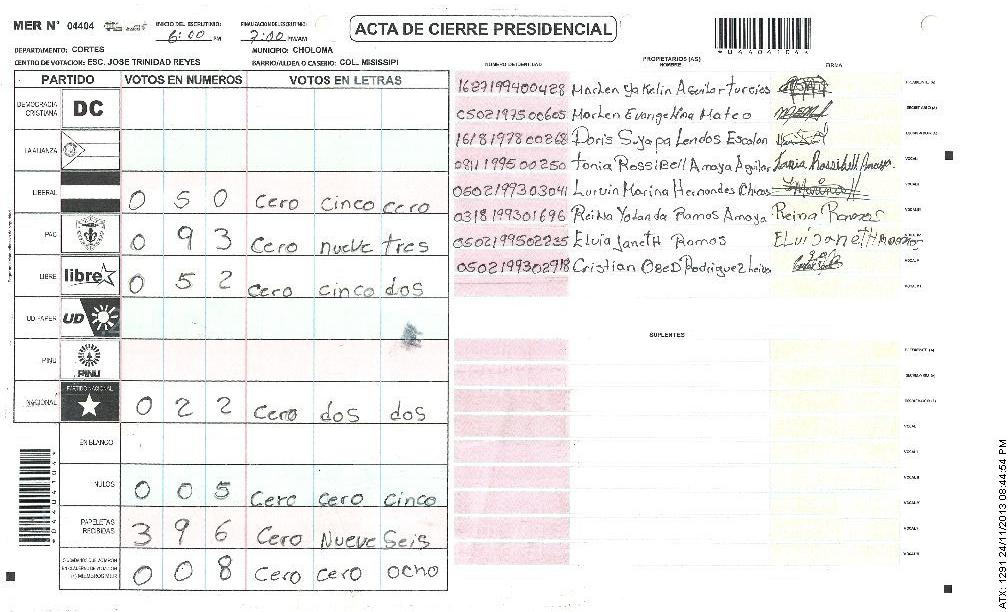 MER N° 04404 INICIO DEL ESCRUTINIO: 6:00 PM FINALIZACION ESCRUTINIO: 7:00 PM/AM ACTA DE CIERRE PRESIDENCIAL
*04404104*
DEPARTAMENTO: CORTES MUNICIPIO: CHOLOMA
CENTRO DE VOTACION: ESC. JOSE TRINIDAD REYES BARRIO/ALDEA O CASERIO: COL. MISISSIPI
PARTIDO VOTOS EN NUMEROS VOTOS EN LETRAS
DEMOCRACIA CRISTIANA DC
LA ALIANZA
LIBERAL 0 5 0 Cero cinco cero
PAC 0 9 3 Cero nueve tres
LIBRE libre 0 5 2 Cero cinco dos
UD FAPER UD
PINU PINU
NACIONAL PARTIDO NACIONAL 0 2 2 Cero dos dos
EN BLANCO
NULOS 0 0 5 Cero cero cinco
PAPELETAS RECIBIDAS 3 9 6 Cero Nueve Seis
0 0 8 Cero cero ocho
*04404104*
PROPIETARIOS (AS)
NUMERO DE IDENTIDAD NOMBRE FIRMA
1627199400428 Marlen Yakelin Aguilar turcios PRESIDENTE (A)
0502197500605 Marlen Evangelina Mateo SECRETARIO (A)
1618197800268 Doris Suyapa Landos Escalon ESCRUTADOR (A)
0911199500250 Tania RossiBell Amaya Aguilar Tania Rossibell Amaya. VOCAL I
0502199303041 Marina Hernandes VOCAL II
0318199301696 Reina Yolanda Ramos Amaya Reina Ramos VOCAL III
0502199502235 Elvia JanetH Ramos Elvia JanetH Ramos
0502199302918 Cristian OBeD Rodriguez leiva VOCAL V
VOCAL VI
SUPLENTES
PRESIDENTE (A)
SECRETARIO (A)
ESCRUTADOR (A)
VOCAL I
VOCAL II
VOCAL III
VOCAL IV
VOCAL V
VOCAL VI
ATX: 1291 24/11/2013 08:44:54 PM